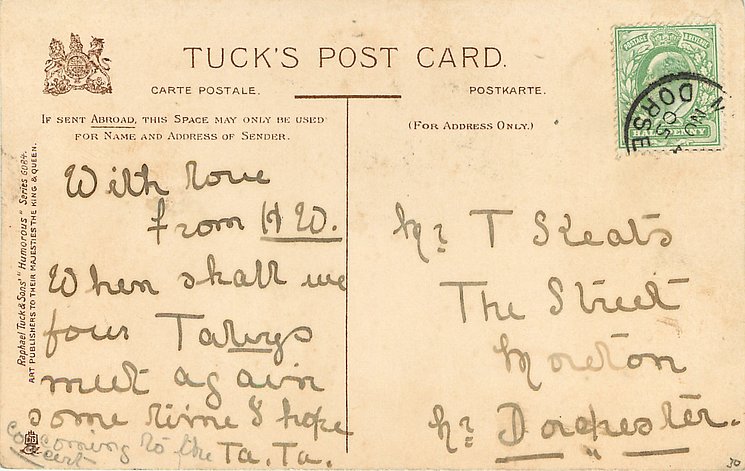 TUCK'S POST CARD.
CARTE POSTALE.
POSTKARTE.
IF SENT ABROAD, THIS SPACE MAY ONLY BE USED
FOR NAME AND ADDRESS OF SENDER.
(FOR ADDRESS ONLY.)
Raphael Tuck & Sons' "Humorous" Series 6084.
ART PUBLISHERS TO THEIR MAJESTIES THE KING & QUEEN.
POSTAGE
HALFPENNY
DORSE
05
With love
from H W.
When shall we
four Talwys
meet again
some time I hope
Ta. Ta.
coming to the
Mr T Skeats
The Street
Moreton
Nr Dorchester.
30